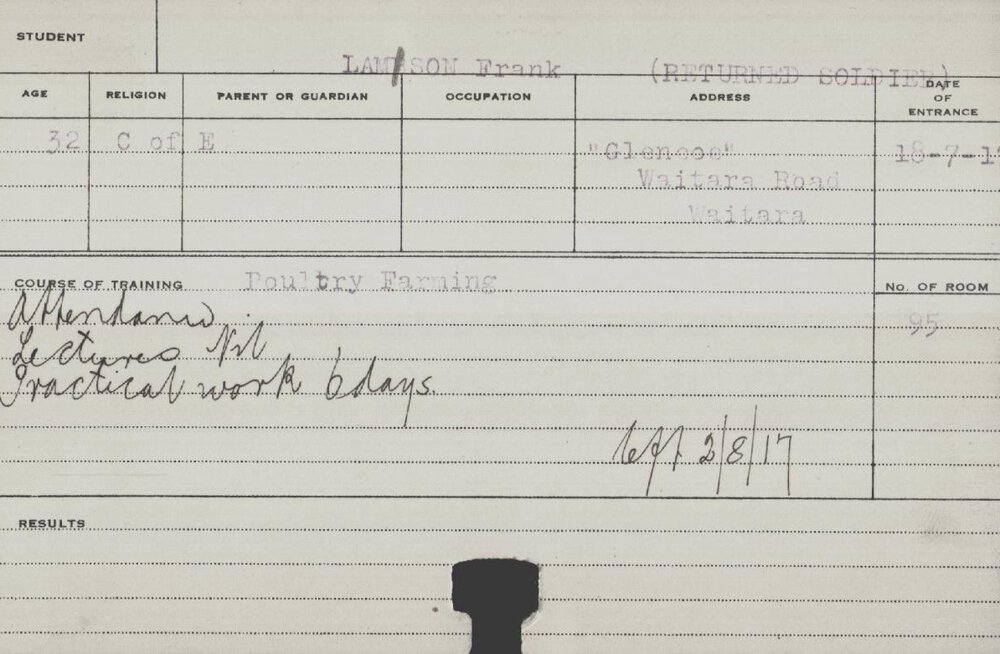 STUDENT
LAM SON Frank (RETURNED SOLDIER)
AGE RELIGION PARENT OR GUARDIAN OCCUPATION ADDRESS DATE OF ENTRANCE
32 C of E "Glencoe" 18-7-1
Waitara Road
Waitara
COURSE OF TRAINING Poultry Farming No. OF ROOM
Attendance 95
Lectures Nil
Practical work 6 days.
Left 2/8/17
RESULTS